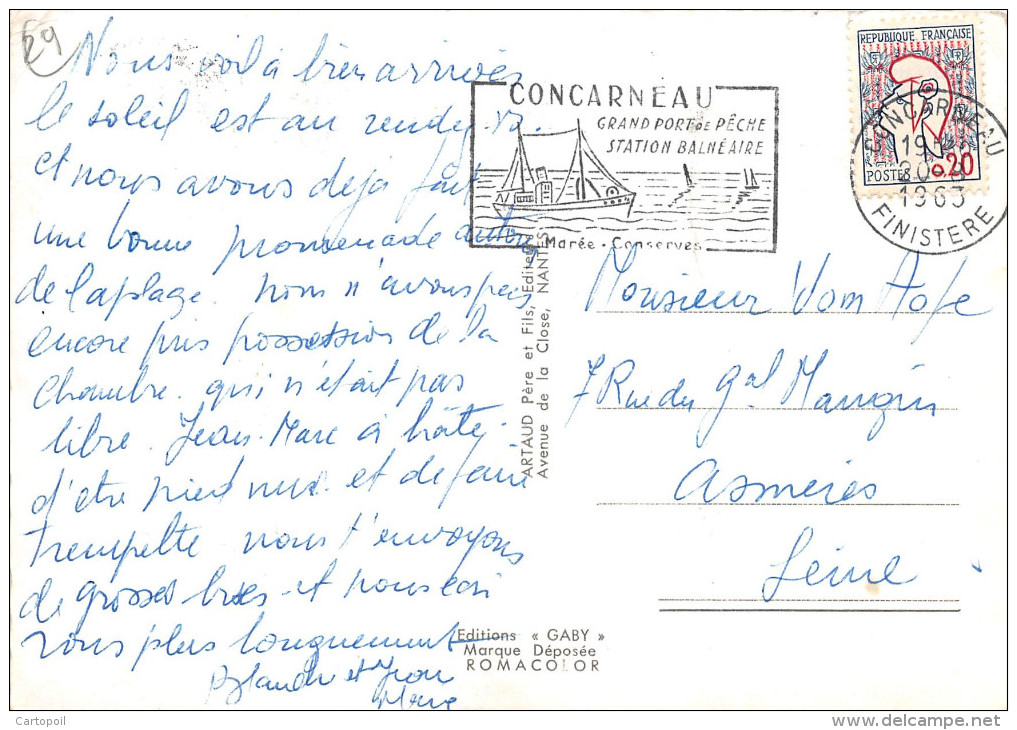 29
Nous voilà bien arrivés
le soleil est au rendez-vs.
et nous avons déjà fait
une bonne promenade autour
de la plage. nous n'avons pas
encore pris possession de la
chambre qui n'était pas
libre. Jean-Marc à hâte
d'etre pied nus et de faire
trempette nous t'envoyons
de grosses bises et nous écri
rons plus longuement
et Jean
Marc
CONCARNEAU
GRAND PORT DE PÊCHE
STATION BALNÉAIRE
Marée - Conserves
REPUBLIQUE FRANÇAISE
POSTES 0,20
CONCARNEAU
1963
FINISTERE
ARTAUD Père et Fils, Editeurs
Avenue de la Close, NANTES
Monsieur
7 Rue du Gal Mangin
Asnieres
Seine
Editions « GABY »
Marque Déposée
ROMACOLOR
Cartopoil
www.delcampe.net